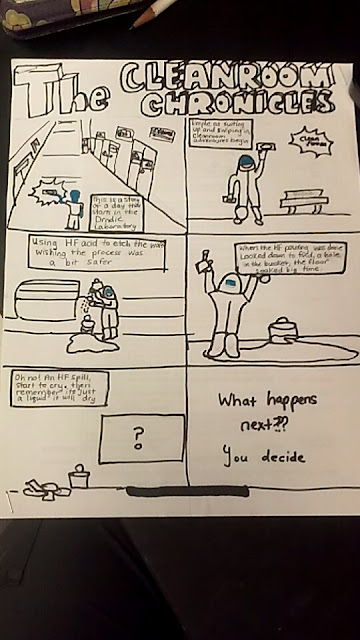 The CLEANROOM
CHRONICLES
This is a story
of a day that
starts in the
Drndic
Laboratory
suiting
up and swiping in
cleanroom
adventures begin
Clean
Room
Using HF acid to etch the wafer
wishing the process was
a bit safer
When the HF pouring was done
Looked down to find, a hole
in the bucket, the floor
soaked big time
Oh no! An HF spill,
start to cry, then
remember its just
a liquid it will dry
?
What happens
next??
You decide